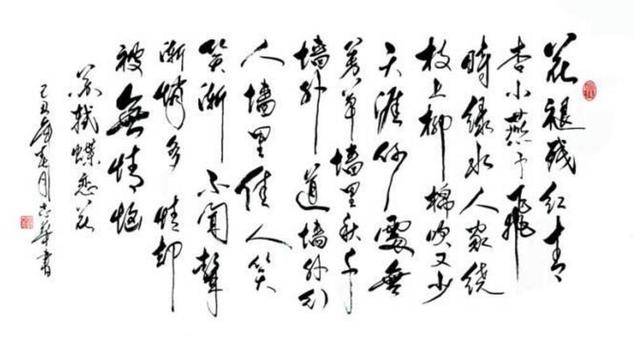 花褪残红青
杏小燕子飛
時绿水人家绕
枝上柳棉吹又少
天涯何處無
芳草墙里秋千
墙外道墙外行
人墙里佳人笑
笑渐不闻聲
渐悄多情却
被無情恼
苏轼蝶恋花
己丑年夏月志華書